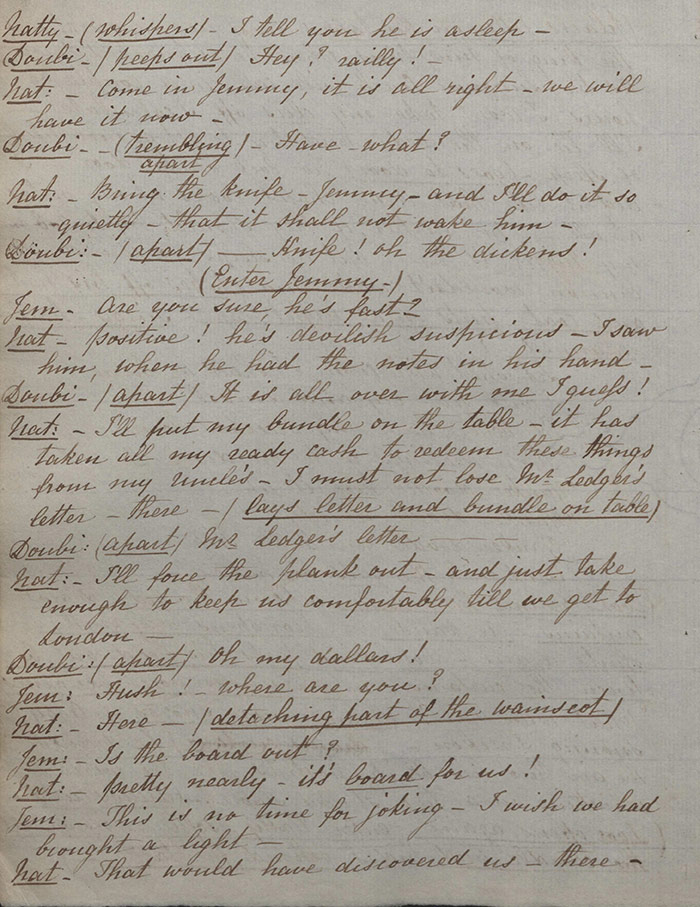 Natty - (whispers) - I tell you he is asleep -
Doubi - (peeps out) Hey? railly! -
Nat: - Come in Jemmy, it is all right - we will
have it now -
Doubi - - (trembling) - Have - what?
apart
Nat: - Bring the knife - Jemmy - and I'll do it so
quietly - that it shall not wake him -
Doubi: - (apart) — Knife! oh the dickens!
(Enter Jemmy -)
Jem - Are you sure, he's fast?
Nat - positive! he's devilish suspicious - I saw
him, when he had the notes in his hand -
Doubi - (apart) It is all over with me I guess!
Nat: - I'll put my bundle on the table - it has
taken all my ready cash to redeem these things
from my Uncle's - I must not lose Mr Ledger's
letter - there - (lays letter and bundle on table)
Doubi: (apart) Mr Ledger's letter — —
Nat: - I'll force the plank out - and just take
enough to keep us comfortably till we get to
London —
Doubi: (apart) Oh my dallars!
Jem: Hush! - where are you?
Nat: - Here — (detaching part of the wainscot)
Jem: - Is the board out?
Nat: - pretty nearly - it's board for us!
Jem: - This is no time for joking - I wish we had
brought a light —
Nat - That would have discovered us - there -